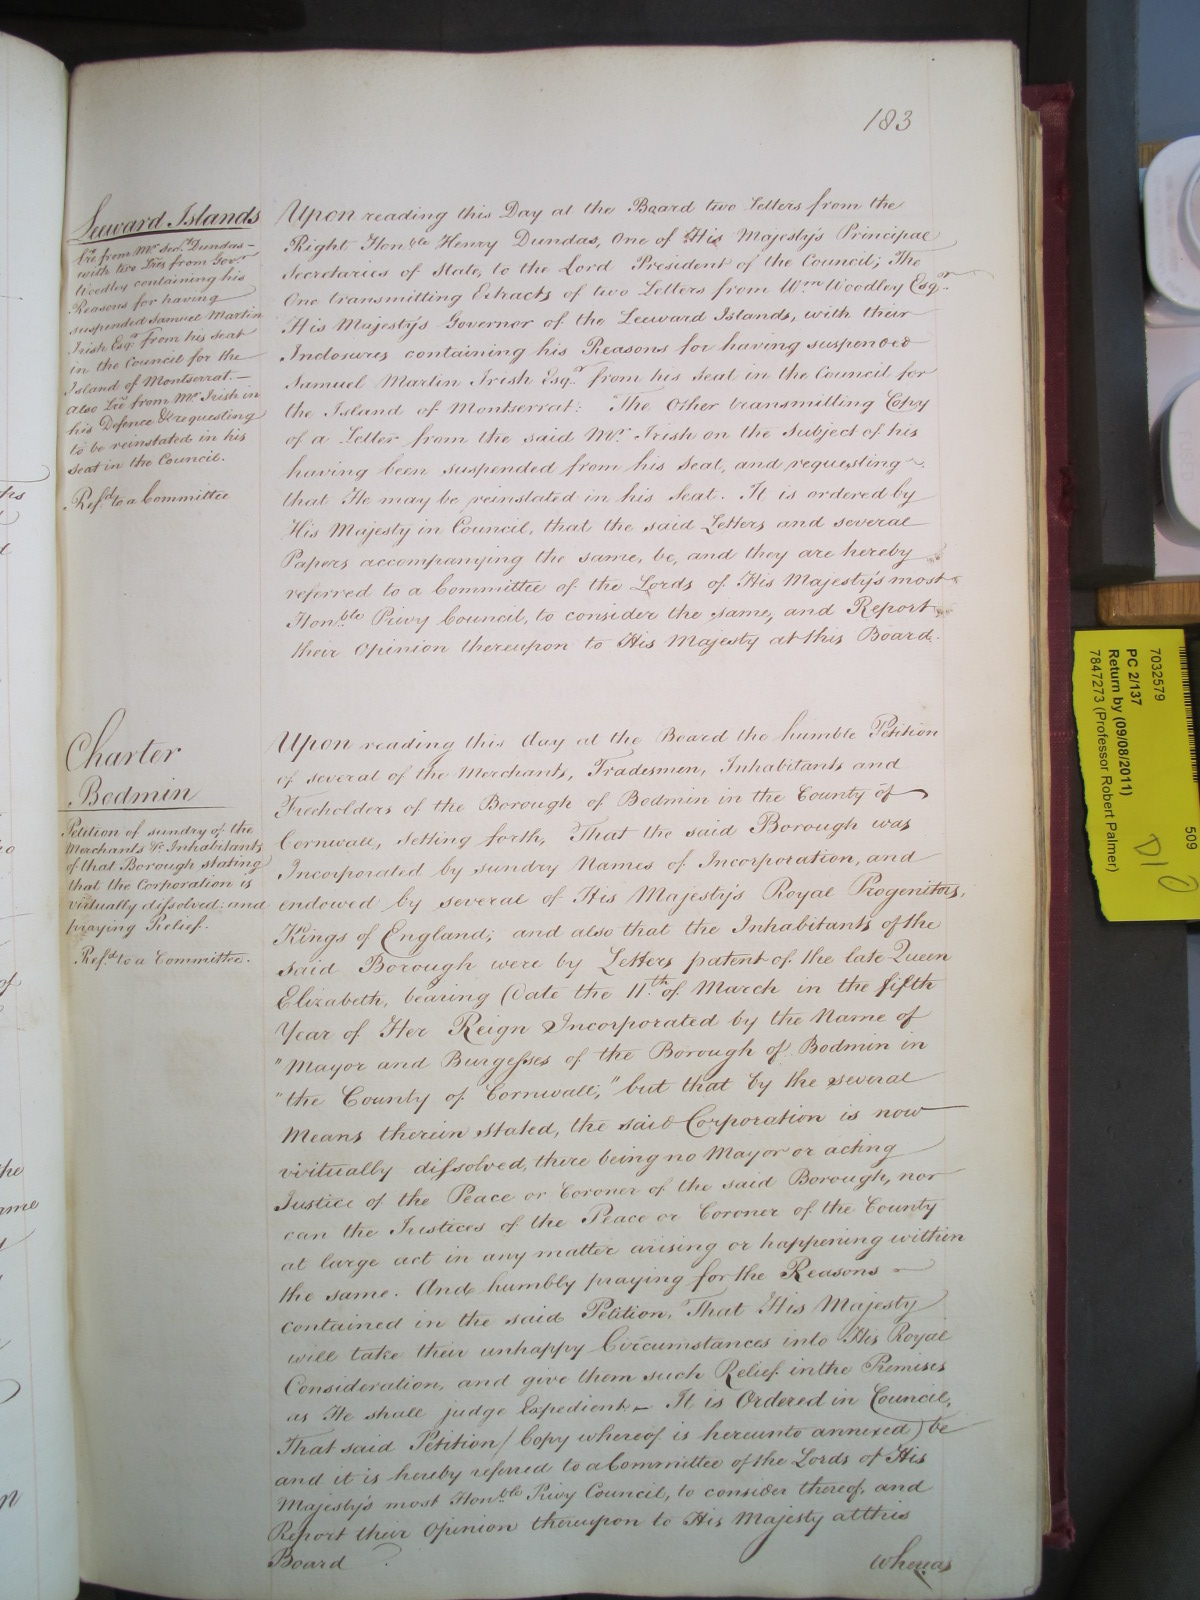 183
Leeward Islands
Lre from Mr. Secry. Dundas—
with two Lres from Govr.
Woodley containing his
Reasons for having
suspended Samuel Martin
Irish Esqr. from his seat
in the Council for the
Island of Montserrat.—
also Lre from Mr. Irish in
his Defence & requesting
to be reinstated in his
seat in the Council.
Refd. to a Committee
Upon reading this Day at the Board two Letters from the
Right Honble Henry Dundas, One of His Majesty's Principal
Secretaries of State, to the Lord President of the Council; The
One transmitting Extracts of two Letters from Wm Woodley Esqr.
His Majesty's Governor of the Leeward Islands, with their
Inclosures containing his Reasons for having suspended
Samuel Martin Irish Esqr. from his Seat in the Council for
the Island of Montserrat: The Other transmitting Copy
of a Letter from the said Mr. Irish on the Subject of his
having been suspended from his Seat, and requesting
that He may be reinstated in his Seat. It is ordered by
His Majesty in Council, that the said Letters and several
Papers accompanying the same, be, and they are hereby
referred to a Committee of the Lords of His Majesty's most
Honble Privy Council, to consider the same, and Report
their Opinion thereupon to His Majesty at this Board.
Charter
Bodmin
Petition of sundry of the
Merchants &c Inhabitants
of that Borough stating
that the Corporation is
virtually dissolved: and
praying Relief.
Refd. to a Committee.
Upon reading this day at the Board the humble Petition
of several of the Merchants, Tradesmen, Inhabitants and
Freeholders of the Borough of Bodmin in the County of
Cornwall, setting forth, That the said Borough was
Incorporated by sundry Names of Incorporation, and
endowed by several of His Majesty's Royal Progenitors,
Kings of England; and also that the Inhabitants of the
said Borough were by Letters patent of the late Queen
Elizabeth, bearing Date the 11th. of March in the fifth
Year of Her Reign Incorporated by the Name of
"Mayor and Burgesses of the Borough of Bodmin in
"the County of Cornwall;" but that by the several
Means therein stated, the said Corporation is now
viritually dissolved, there being no Mayor or acting
Justice of the Peace or Coroner of the said Borough, nor
can the Justices of the Peace or Coroner of the County
at large act in any matter arising or happening within
the same. And humbly praying for the Reasons
contained in the said Petition, That His Majesty
will take their unhappy Circumstances into His Royal
Consideration, and give them such Relief in the Premises
as He shall judge Expedient — It is Ordered in Council,
That said Petition (Copy whereof is hereunto annexed) be
and it is hereby referred to a Committee of the Lords of His
Majesty's most Honble. Privy Council, to consider thereof, and
Report their Opinion thereupon to His Majesty at this
Board
Whereas
7032579
509
PC 2/137
Return by (09/08/2011)
7847273 (Professor Robert Palmer)
D10